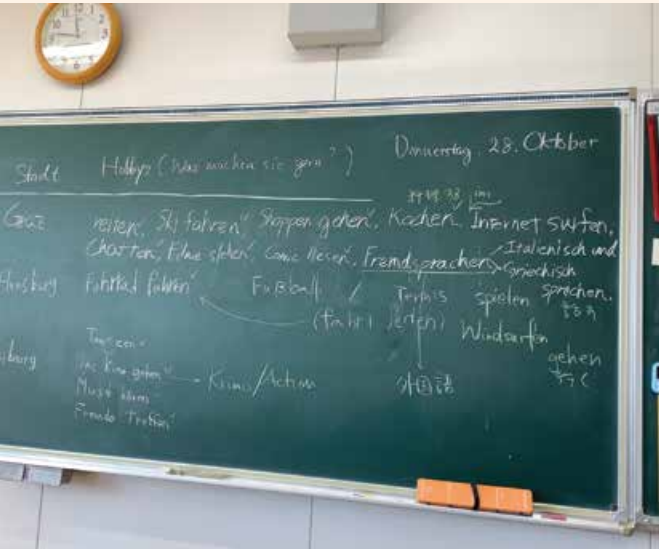 Donnerstag, 28. Oktober
Stadt Hobbys (Was machen sie gern?)
Graz reiten, Ski fahren, Shoppen gehen, Kochen, Internet surfen,
Chatten, Filme sehen, Comic lesen, Fremdsprachen Italienisch und
Griechisch
Flensburg Fahrrad fahren Fußball Tennis spielen sprechen.
Windsurfen
gehen
Tanzen
ins Kino gehen Krimi/Action
外国語
Musik hören
Freunde Treffen